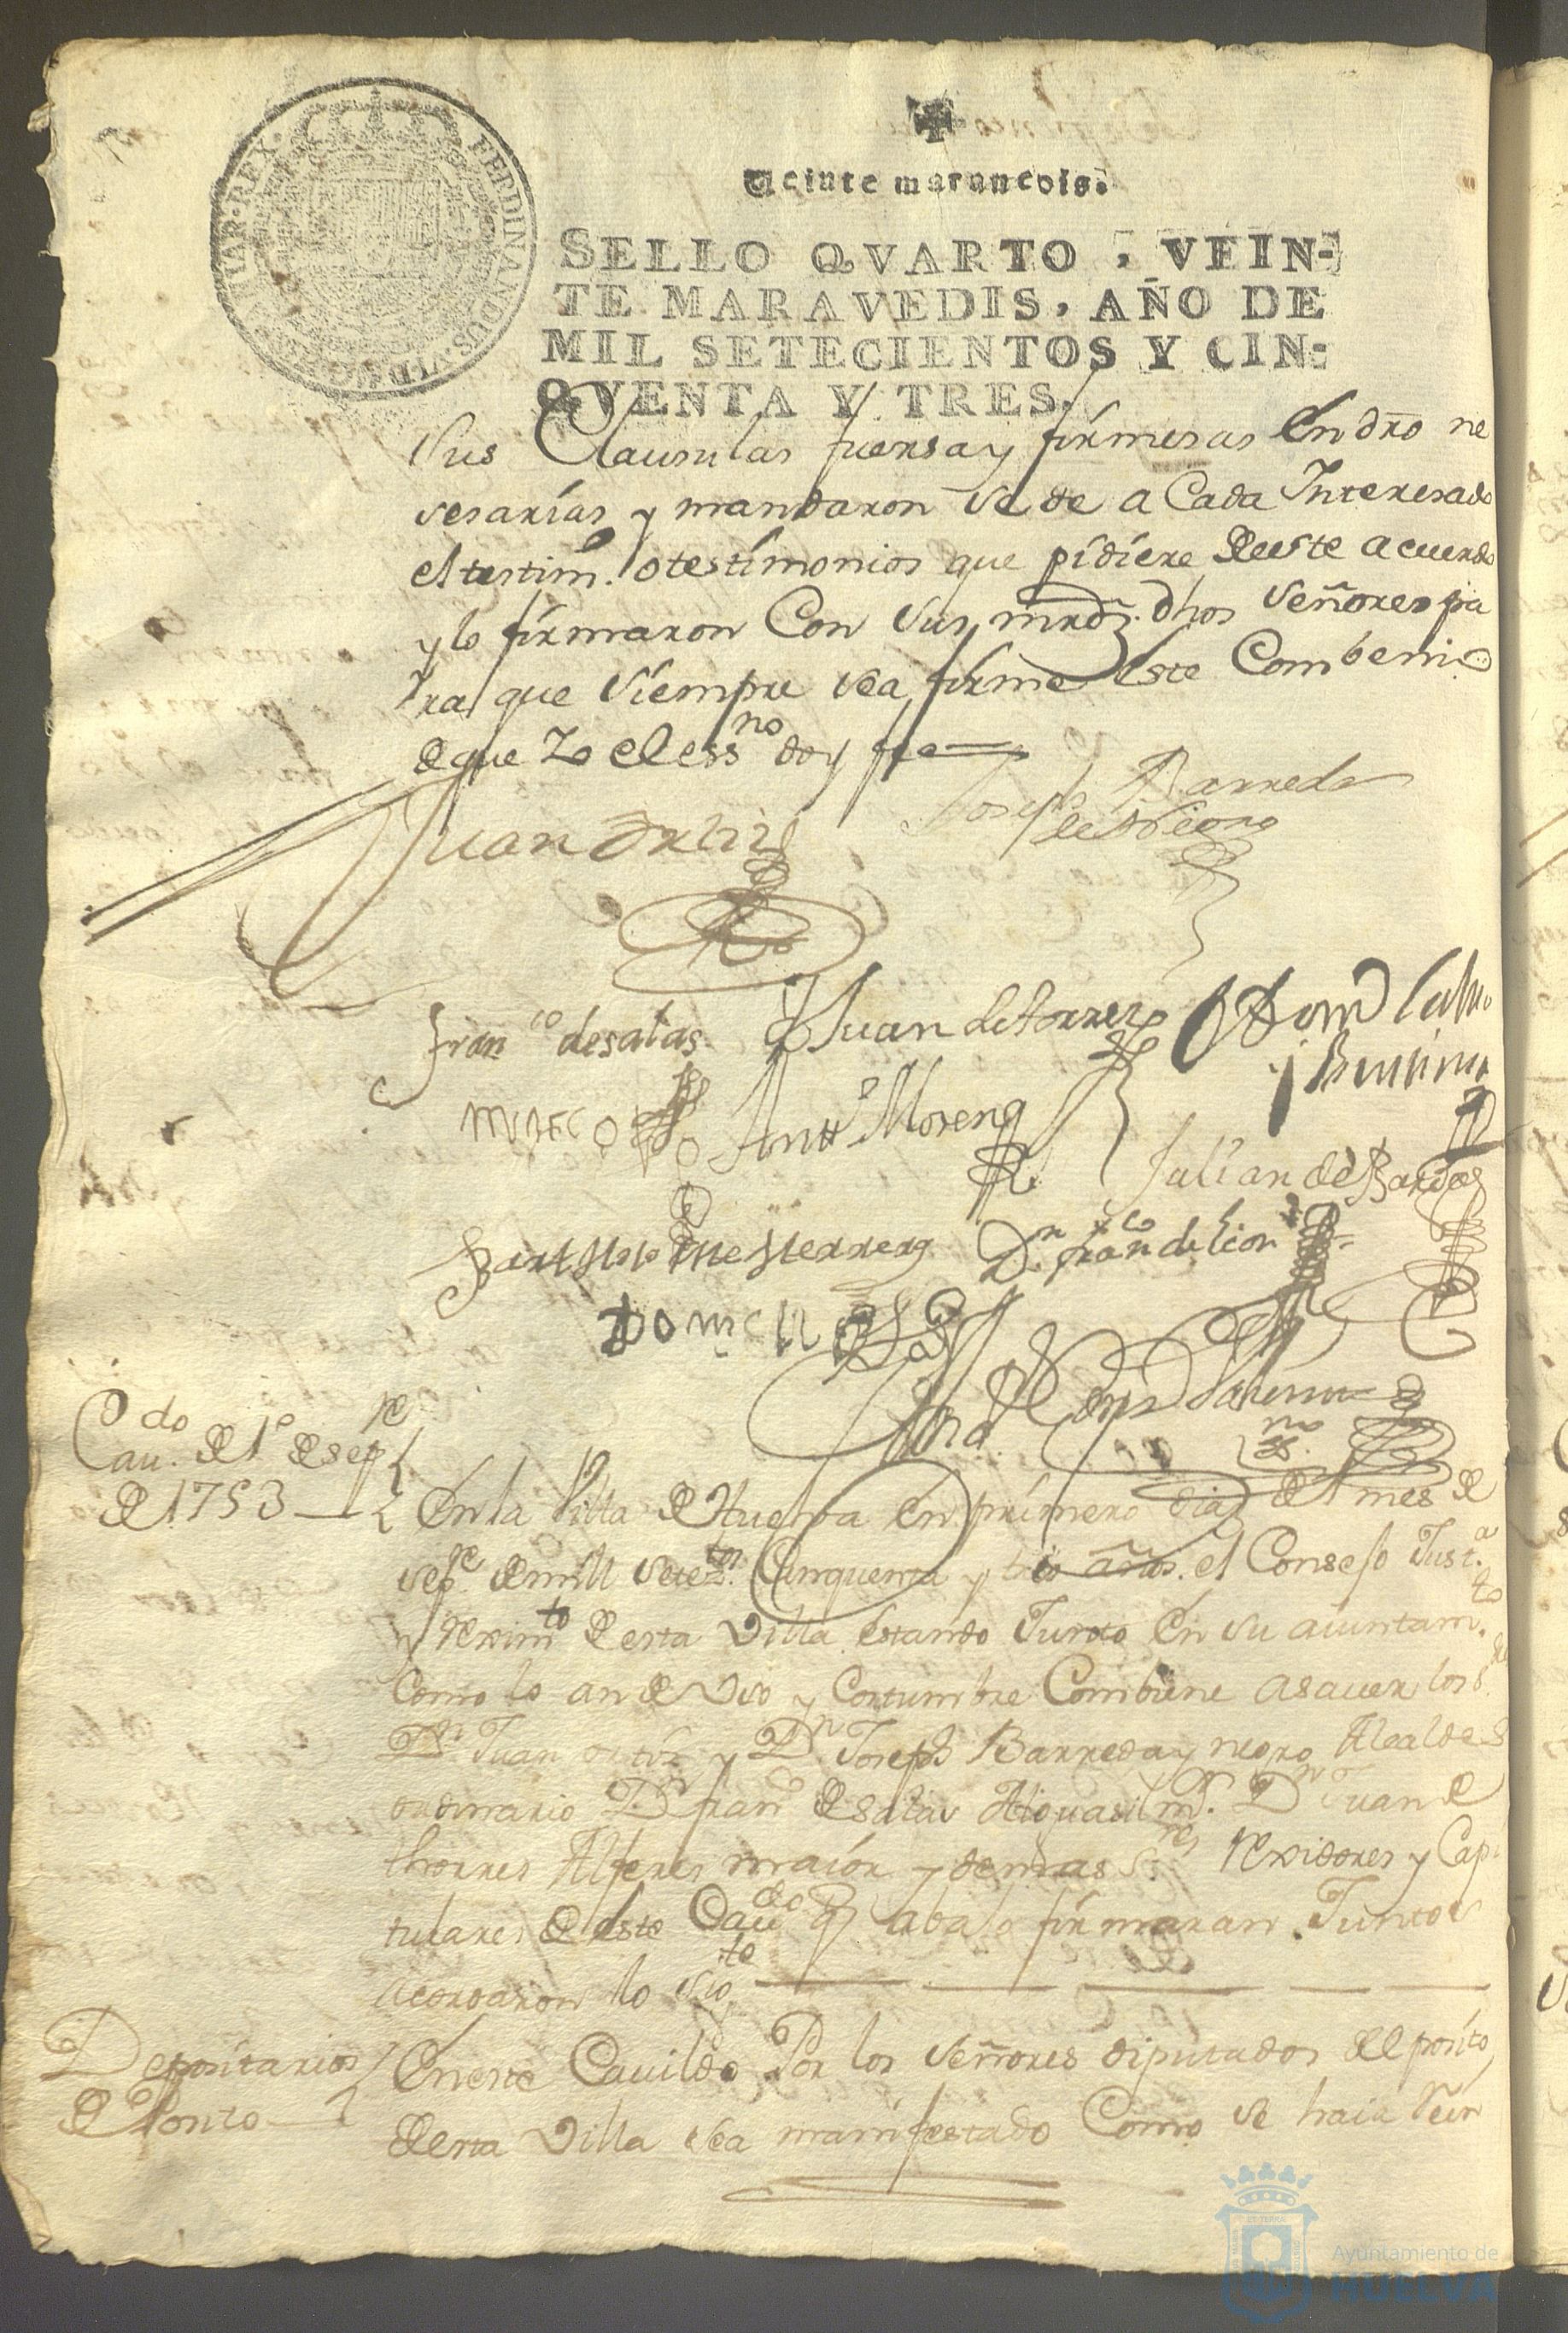 FERDINANDUS·VI·D·G· HISPANIAR·REX·
Veinte maravedis.
SELLO QVARTO, VEIN-
TE MARAVEDIS, AÑO DE
MIL SETECIENTOS Y CIN-
QVENTA Y TRES.
sus Clausulas fuersa y firmesas en dro ne
sesarias y mandaron se de a Cada Interesado
el testim.o o testimonios que pidiere deeste acuerdo
y lo firmaron Con sus mrds. dhos señores pa
ra que siempre sea firme este Combenio
de que Yo el essno doy fee
Juan Ortiz
Joseph Barreda
de Negro
Franco desalas
Juan de torres
Antto Moreno
Julian de
Bartholome Herrera Dn franco de leon
Cavdo de 1o de sepre
de 1753
En la Villa de Huelva en primero dia del mes de
sepre de mill setezos Cinquenta y tres años. el Consejo Justa
y reximto de esta Villa estando Junto en su aiuntamto
Como lo an de Uso y Costumbre Combiene asaver los ss.res
Dn Juan ortiz y Dn Joseph Barreda y negro Alcaldes
ordinario Dn franco de salas Alguasil mr. Dn Juan de
thorres Alferes maior y demas sres rexidores y Capi
tulares de este Cavdo q abajo firmaran Juntos
acordaron lo sigte
Depositarios
del Posito
En este Cavildo Por los señores diputados del posito
de esta Villa sea manifestado Como se haia sin
Ayuntamiento de
HUELVA